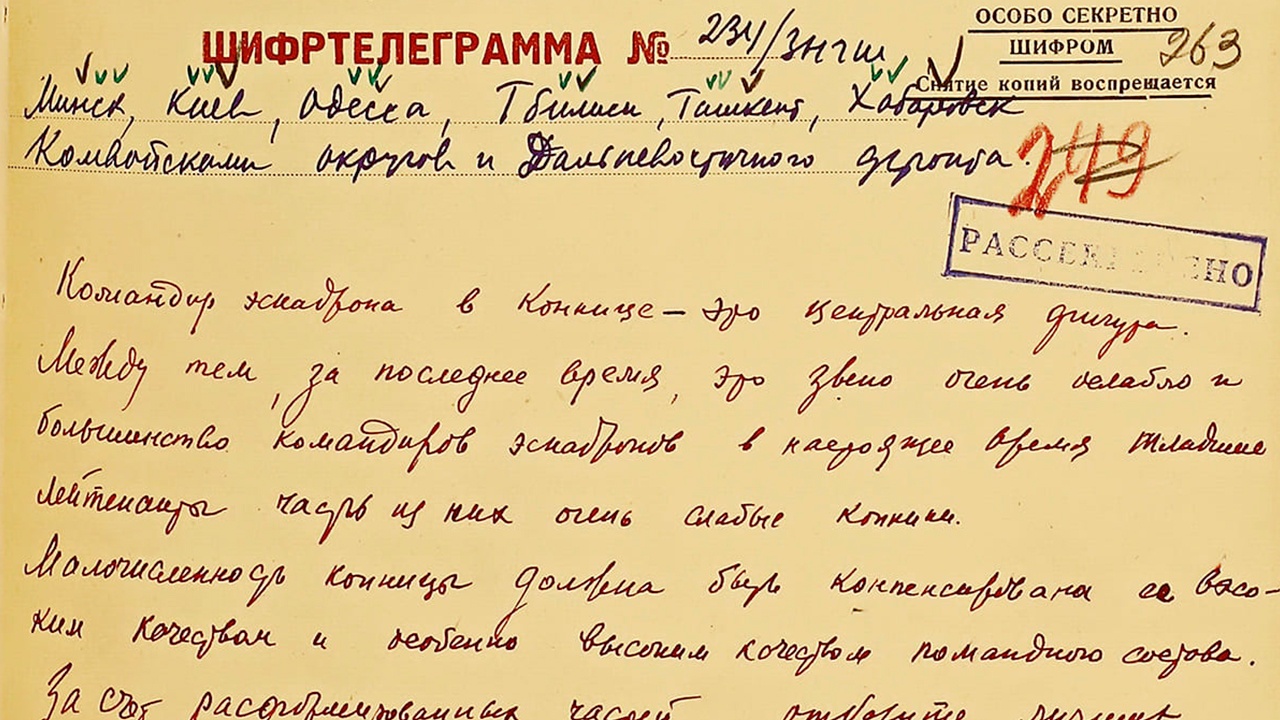 ОСОБО СЕКРЕТНО
ШИФРОМ
Снятие копий воспрещается
263
ШИФРТЕЛЕГРАММА № 234/знгш
Минск, Киев, Одесса, Тбилиси, Ташкент, Хабаровск
Комвойсками округов и Дальневосточного фронта.
249
РАССЕКРЕЧЕНО
Командир эскадрона в коннице – это центральная фигура.
Между тем, за последнее время, это звено очень ослабло и
большинство командиров эскадронов в настоящее время младшие
лейтенанты часть из них очень слабые конники.
Малочисленность конницы должна быть компенсирована ее высо-
ким качеством и особенно высоким качеством командного состава.
За счет расформированных частей отберите лучших